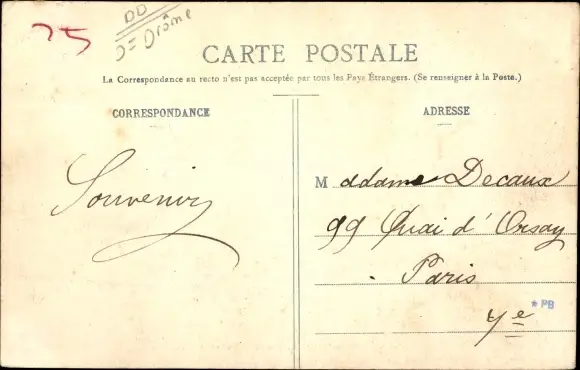 75
DD
D = Drôme
CARTE POSTALE
La Correspondance au recto n'est pas acceptée par tous les Pays Étrangers. (Se renseigner à la Poste.)
CORRESPONDANCE
Souvenir
ADRESSE
Madame Decaux
99 Quai d'Orsay
Paris
7e
* PB